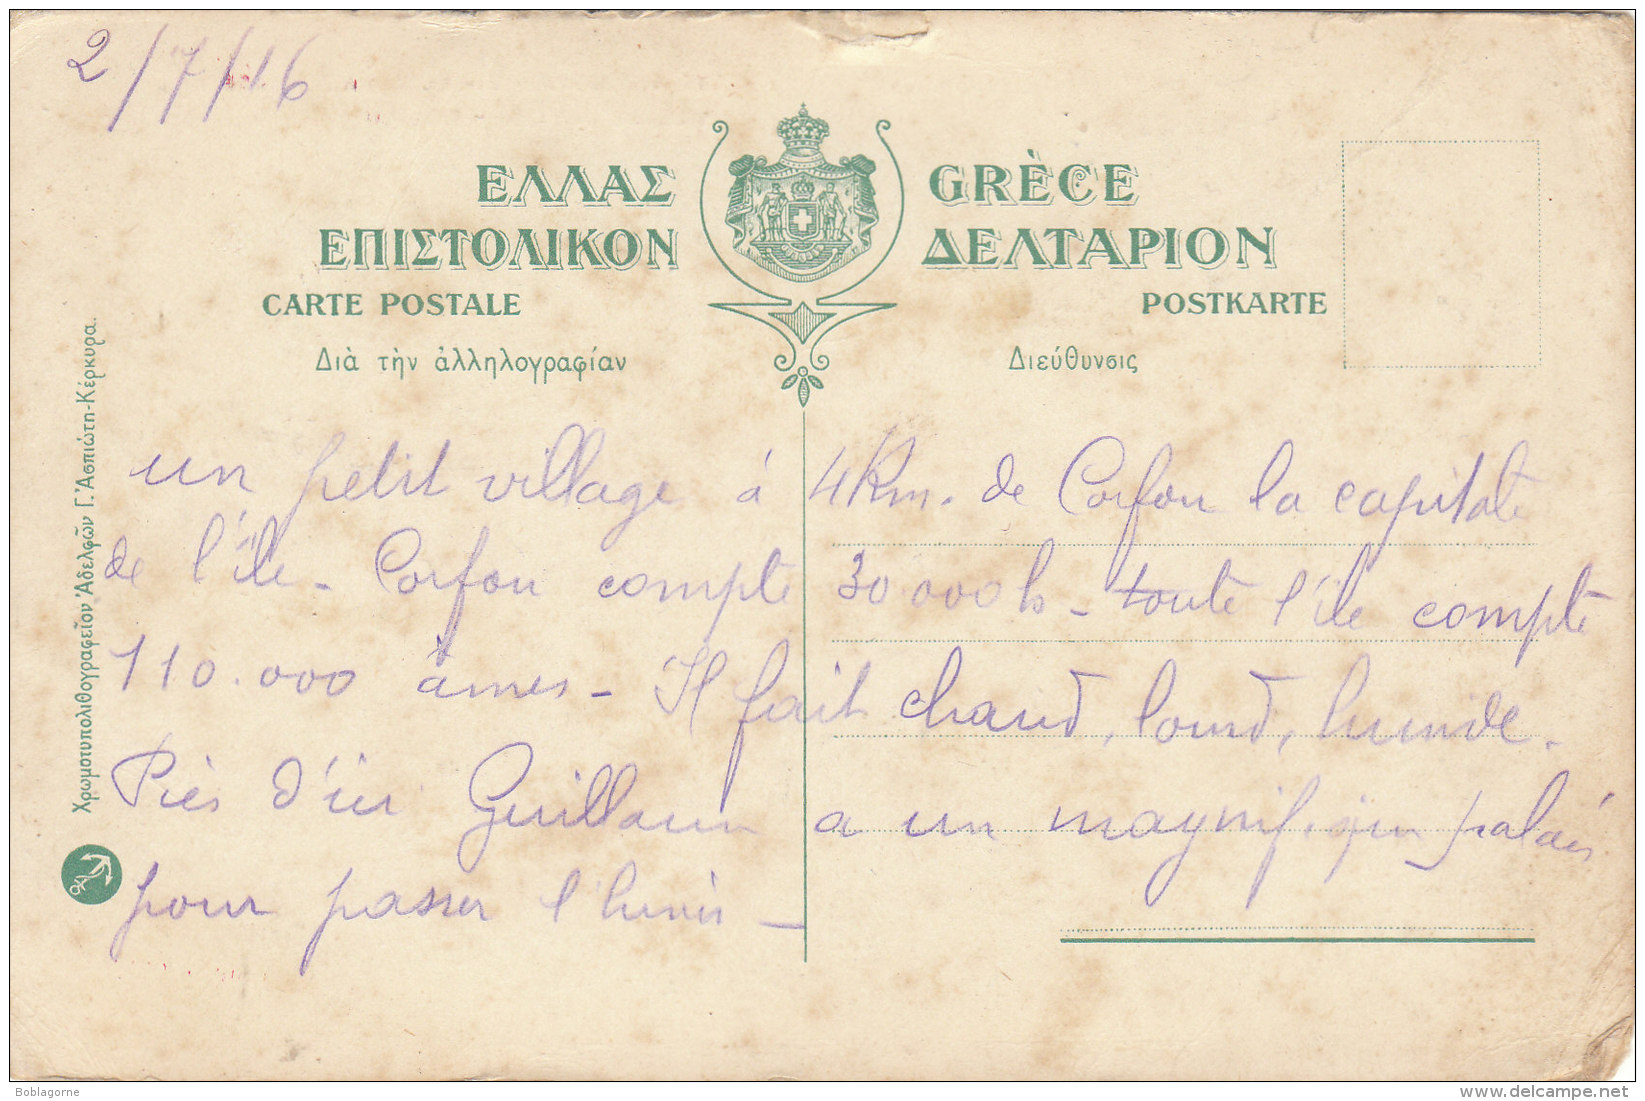 2/7/16
ΕΛΛΑΣ GRÈCE
ΕΠΙΣΤΟΛΙΚΟΝ ΔΕΛΤΑΡΙΟΝ
CARTE POSTALE POSTKARTE
Διὰ τὴν ἀλληλογραφίαν Διεύθυνσις
un petit village à 4 Km. de Corfou la capitale
de l'île - Corfou compte 30 000 h - toute l'île compte
110.000 âmes - Il fait chaud, lourd, humide.
Près d'ici Guillaume a un magnifique palais
pour passer l'hiver -
Χρωμοτυπολιθογραφεῖον Ἀδελφῶν Γ. Ἀσπιώτη-Κέρκυρα.
Boblagorne
delcampe.net